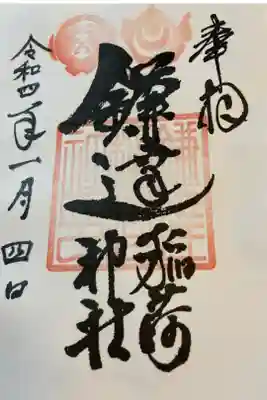 奉拝
鎌達稲荷神社
令和四年一月四日